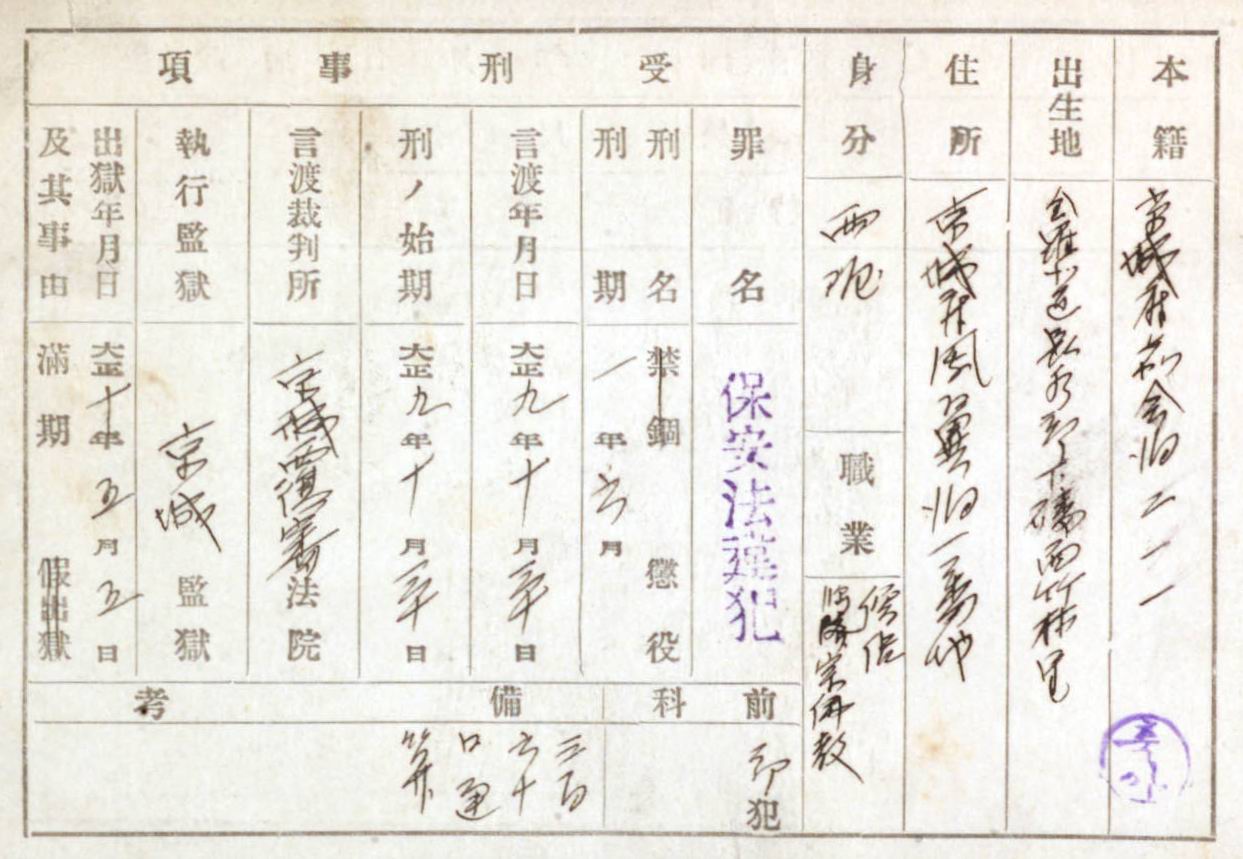 本籍
京城府苑洞二一一
出生地
全羅北道長水郡下磻岩面竹林里
住所
京城府鳳翼洞一番地
身分
両班
職業
僧侶
佛教
受刑事項
罪名
保安法違犯
刑名
禁錮 懲役
刑期
一年六月
言渡年月日
大正九年十月三十日
刑ノ始期
大正九年十月三十日
言渡裁判所
京城覆審法院
執行監獄
京城監獄
出獄年月日
大正十年五月五日
及其事由
滿期 假出獄
前科
初犯
備考
三百
六十
口通
算